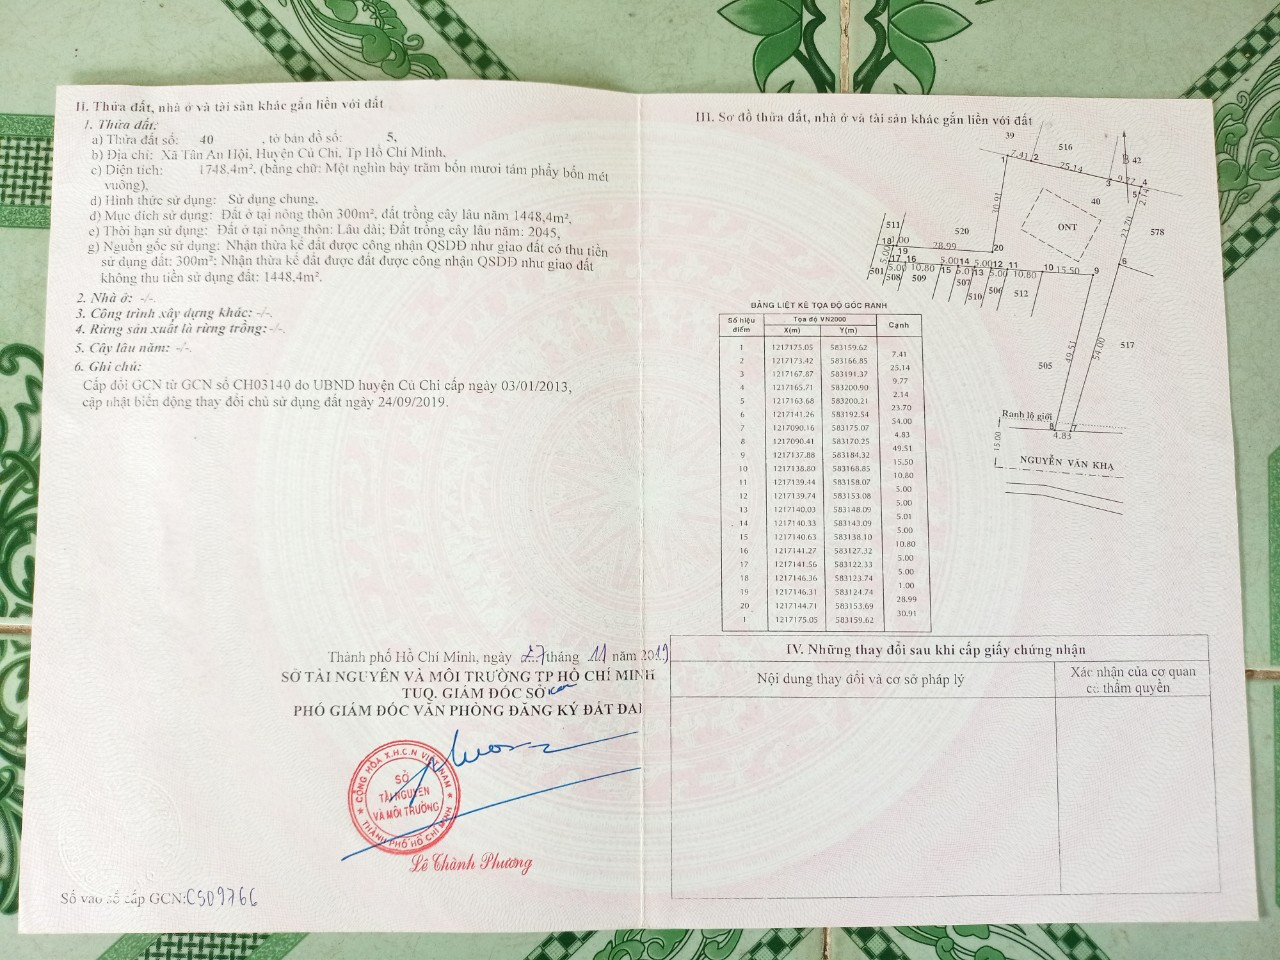 II. Thửa đất, nhà ở và tài sản khác gắn liền với đất
1. Thửa đất:
a) Thửa đất số: 40 , tờ bản đồ số: 5,
b) Địa chỉ: Xã Tân An Hội, Huyện Củ Chi, Tp Hồ Chí Minh,
c) Diện tích: 1748.4m², (bằng chữ: Một nghìn bảy trăm bốn mươi tám phẩy bốn mét
vuông),
d) Hình thức sử dụng: Sử dụng chung,
đ) Mục đích sử dụng: Đất ở tại nông thôn 300m², đất trồng cây lâu năm 1448,4m²,
e) Thời hạn sử dụng: Đất ở tại nông thôn: Lâu dài; Đất trồng cây lâu năm: 2045,
g) Nguồn gốc sử dụng: Nhận thừa kế đất được công nhận QSDĐ như giao đất có thu tiền
sử dụng đất: 300m²; Nhận thừa kế đất được đất được công nhận QSDĐ như giao đất
không thu tiền sử dụng đất: 1448,4m².
2. Nhà ở: -/-.
3. Công trình xây dựng khác: -/-.
4. Rừng sản xuất là rừng trồng: -/-.
5. Cây lâu năm: -/-.
6. Ghi chú:
Cấp đổi GCN từ GCN số CH03140 do UBND huyện Củ Chi cấp ngày 03/01/2013,
cập nhật biến động thay đổi chủ sử dụng đất ngày 24/09/2019.
Thành phố Hồ Chí Minh, ngày 27 tháng 11 năm 2019
SỞ TÀI NGUYÊN VÀ MÔI TRƯỜNG TP HỒ CHÍ MINH
TUQ. GIÁM ĐỐC SỞ
PHÓ GIÁM ĐỐC VĂN PHÒNG ĐĂNG KÝ ĐẤT ĐAI
CỘNG HÒA X.H.C.N VIỆT NAM
SỞ
TÀI NGUYÊN
VÀ MÔI TRƯỜNG
THÀNH PHỐ HỒ CHÍ MINH
Lê Thành Phương
Số vào sổ cấp GCN: CS09766
III. Sơ đồ thửa đất, nhà ở và tài sản khác gắn liền với đất
39
516
B 42
1 7.41 2 25.14 3 9.77 4
5 2.14
30.91
40
ONT
23.70
578
511
520
18 1.00
19 28.99 20
5.00
17 16 5.00 14 5.00 12 11 10 15.50 9
6
5.00 10.80 15 5.01 13 5.00 10.80
501 508 509 507 510 506 512
49.51
54.00
517
505
Ranh lộ giới
8 7
4.83
15.00
NGUYỄN VĂN KHẠ
BẢNG LIỆT KÊ TỌA ĐỘ GÓC RANH
Số hiệu điểm Tọa độ VN2000 Cạnh
X(m) Y(m)
1 1217175.05 583159.62
7.41
2 1217173.42 583166.85
25.14
3 1217167.87 583191.37
9.77
4 1217165.71 583200.90
2.14
5 1217163.68 583200.21
23.70
6 1217141.26 583192.54
54.00
7 1217090.16 583175.07
4.83
8 1217090.41 583170.25
49.51
9 1217137.88 583184.32
15.50
10 1217138.80 583168.85
10.80
11 1217139.44 583158.07
5.00
12 1217139.74 583153.08
5.00
13 1217140.03 583148.09
5.01
14 1217140.33 583143.09
5.00
15 1217140.63 583138.10
10.80
16 1217141.27 583127.32
5.00
17 1217141.56 583122.33
5.00
18 1217146.36 583123.74
1.00
19 1217146.31 583124.74
28.99
20 1217144.71 583153.69
30.91
1 1217175.05 583159.62
IV. Những thay đổi sau khi cấp giấy chứng nhận
Nội dung thay đổi và cơ sở pháp lý
Xác nhận của cơ quan
có thẩm quyền